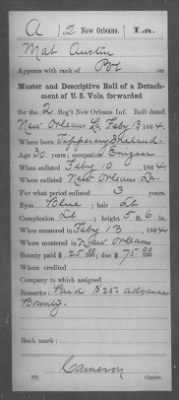 A | 2 New Orleans. | La.
Mat Austin
Appears with rank of Pvt
Muster and Descriptive Roll of a Detach-
ment of U. S. Vols. forwarded
for the 2 Reg't New Orleans Inf. Roll dated
New Orleans La Feby 13 1864
Where born Tipperary Ireland
Age 30 years; occupation
When enlisted Feby 10, 1864
Where enlisted New Orleans La.
For what period enlisted 3 years.
Eyes Blue; hair Lt
Complexion Lt; height 5 ft. 6 in.
When mustered in Feby 13, 1864
Where mustered in New Orleans
Bounty paid $ 25 00/100; due $ 75 00/100
Where credited
Company to which assigned
Remarks: Paid $25 00 advance
Bounty.
Book mark:
Cameron
Copyist.